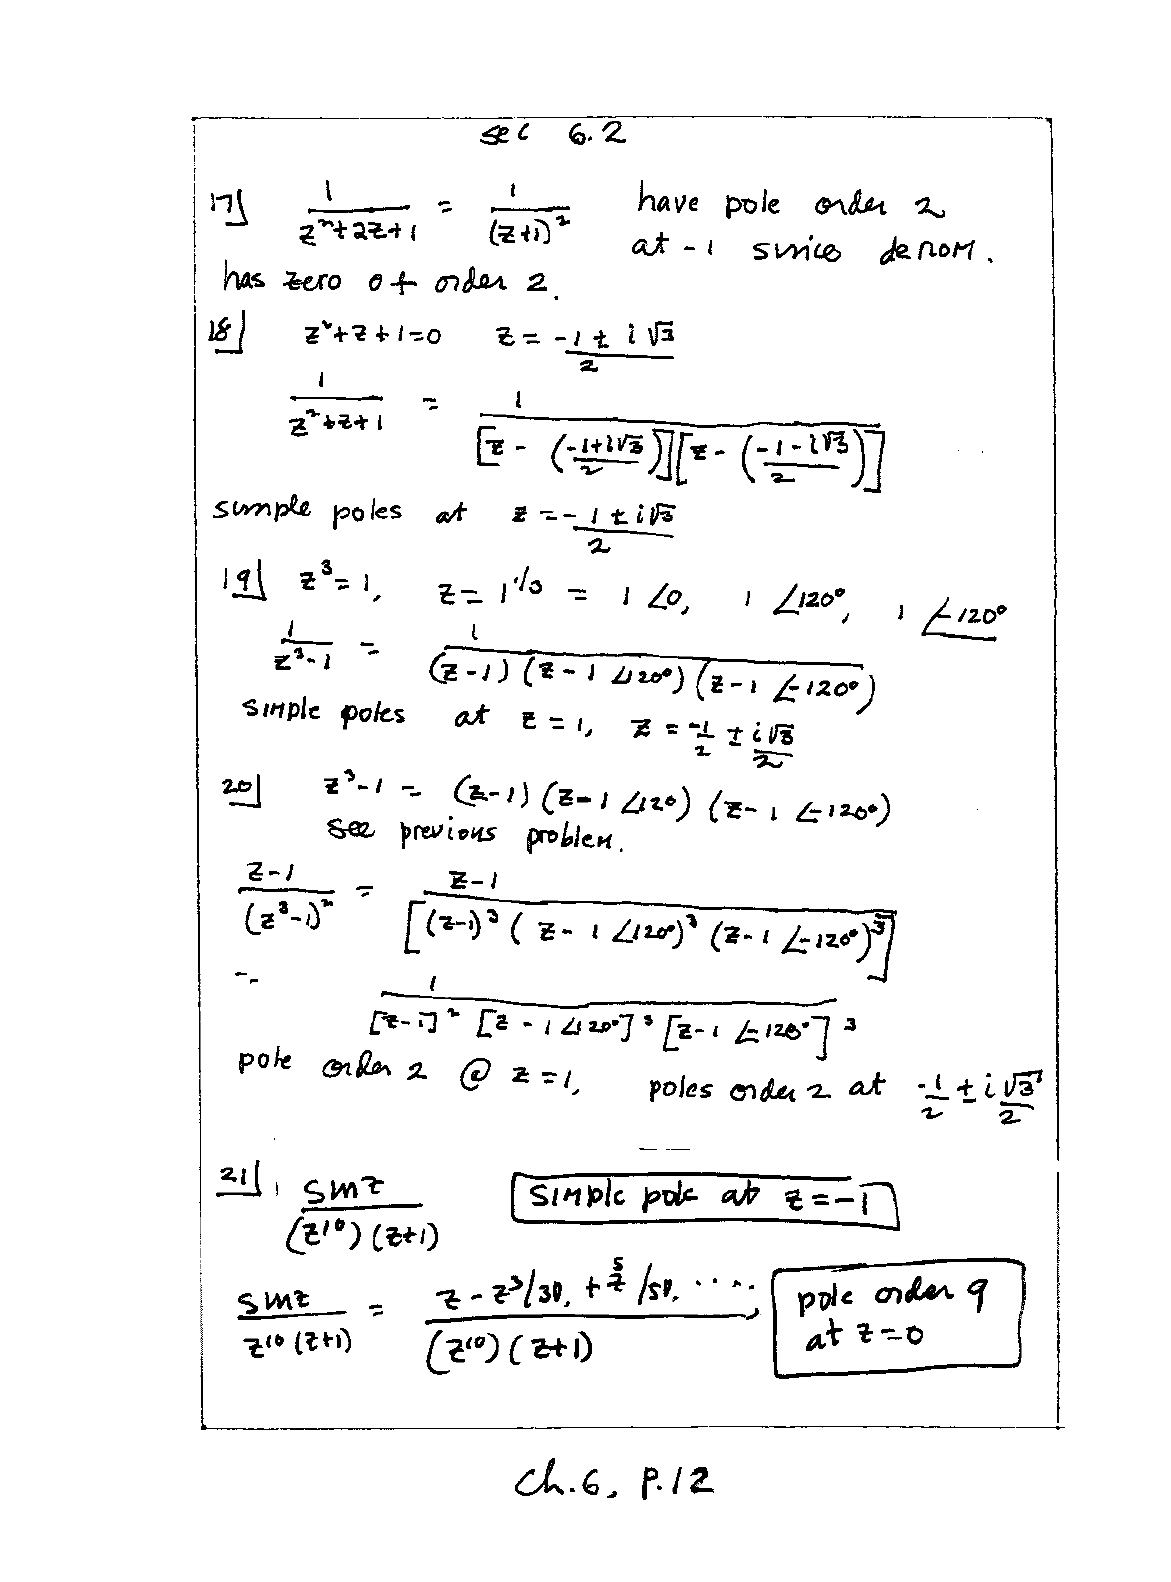 sec 6.2
17] 1/(z²+2z+1) = 1/(z+1)² have pole order 2
at -1 since denom.
has zero of order 2.
18] z²+z+1=0 z = (-1 ± i√3)/2
1/(z²+z+1) = 1/([z - ((-1+i√3)/2)][z - ((-1-i√3)/2)])
simple poles at z = (-1 ± i√3)/2
19] z³=1, z = 1^(1/3) = 1 ∠0, 1 ∠120°, 1 ∠-120°
1/(z³-1) = 1/((z-1)(z-1 ∠120°)(z-1 ∠-120°))
simple poles at z=1, z = -1/2 ± i√3/2
20] z³-1 = (z-1)(z-1 ∠120)(z-1 ∠-120°)
see previous problem.
(z-1)/(z³-1)² = (z-1)/[(z-1)³(z-1 ∠120°)³(z-1 ∠-120°)³]
= 1/([z-1]² [z-1 ∠120°]³ [z-1 ∠-120°]³)
pole order 2 @ z=1, poles order 2 at -1/2 ± i√3/2
21] sinz/((z¹⁰)(z+1)) simple pole at z=-1
sinz/(z¹⁰(z+1)) = (z - z³/3!, + z⁵/5!, ....)/((z¹⁰)(z+1)) pole order 9
at z=0
Ch.6, P.12